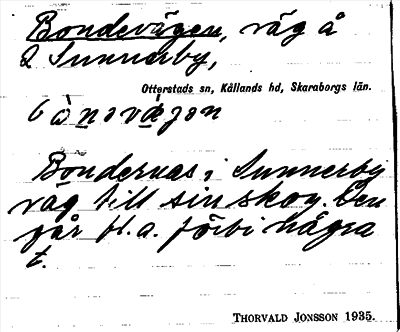 Bondevägen, väg å
Q Sunnerby,
Otterstads sn, Kållands hd, Skaraborgs län.
Bondernas i Sunnerby
väg till sin skog. Den
går bl.a. förbi några
t.
THORVALD JONSSON 1935.